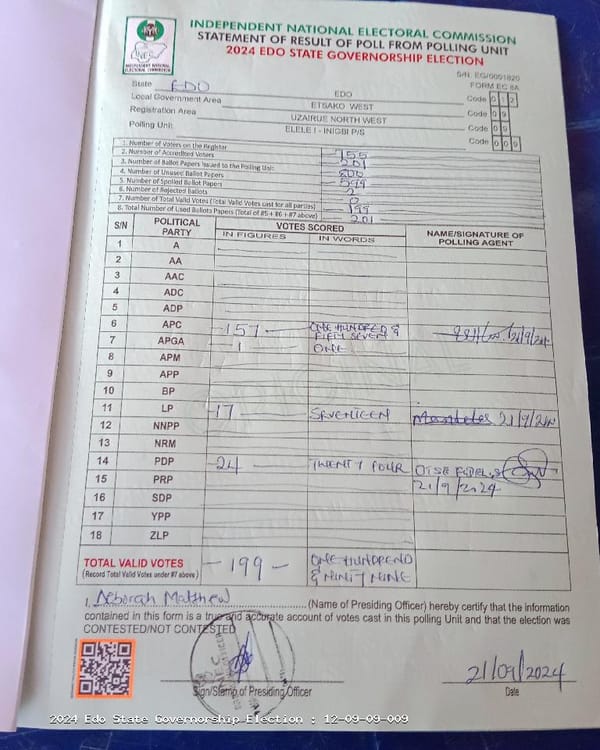 INDEPENDENT NATIONAL ELECTORAL COMMISSION
STATEMENT OF RESULT OF POLL FROM POLLING UNIT
2024 EDO STATE GOVERNORSHIP ELECTION
S/N: EG/0001820
FORM EC 8A
State EDO EDO Code 012
Local Government Area ETSAKO WEST Code 09
Registration Area UZAIRUE NORTH WEST Code 09
Polling Unit ELELE I - INIGBI P/S Code 009
1. Number of Voters on the Register 755
2. Number of Accredited Voters 201
3. Number of Ballot Papers Issued to the Polling Unit
4. Number of Unused Ballot Papers 599
5. Number of Spoiled Ballot Papers 2
6. Number of Rejected Ballots 0
7. Number of Total Valid Votes (Total Valid Votes cast for all parties) 199
8. Total Number of Used Ballots Papers (Total of #5+ #6 + #7 above) 201
S/N POLITICAL PARTY VOTES SCORED NAME/SIGNATURE OF POLLING AGENT
IN FIGURES IN WORDS
1 A
2 AA
3 AAC
4 ADC
5 ADP
6 APC 157 ONE HUNDRED & FIFTY SEVEN 21/9/24
7 APGA 1 ONE
8 APM
9 APP
10 BP
11 LP 17 SEVENTEEN 21/9/24
12 NNPP
13 NRM
14 PDP 24 TWENTY FOUR
15 PRP 21/9/2024
16 SDP
17 YPP
18 ZLP
TOTAL VALID VOTES - 199 - ONE HUNDREND & NINTY NINE
(Record Total Valid Votes under #7 above)
I, Deborah Matthew (Name of Presiding Officer) hereby certify that the information
contained in this form is a true and accurate account of votes cast in this polling Unit and that the election was
CONTESTED/NOT CONTESTED
21/09/2024
Sign/Stamp of Presiding Officer Date
2024 Edo State Governorship Election : 12-09-09-009